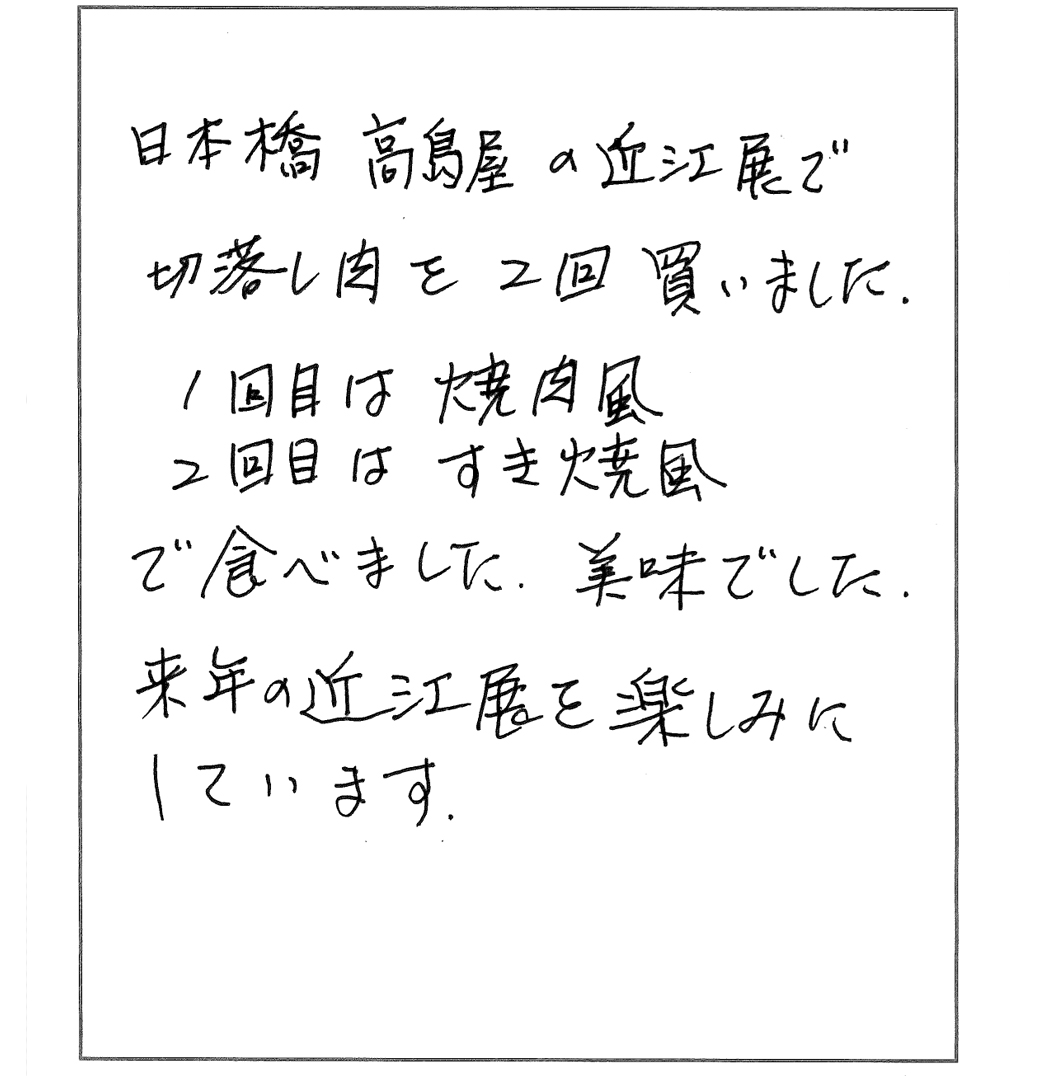 日本橋 高島屋の近江展で
切落し肉を2回買いました.
1回目は焼肉風
2回目はすき焼風
で食べました. 美味でした.
来年の近江展を楽しみに
しています.